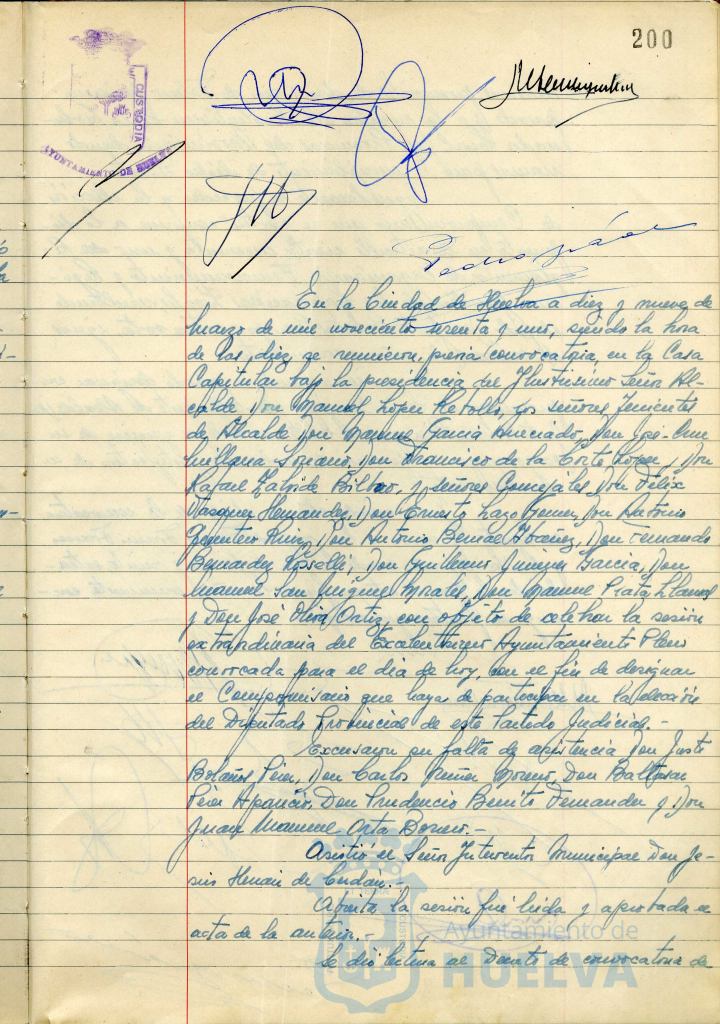 200
CUSTODIA
AYUNTAMIENTO DE HUELVA
Pedro
En la Ciudad de Huelva a diez y nueve de
marzo de mil novecientos setenta y uno, siendo la hora
de las diez se reunieron, previa convocatoria, en la Casa
Capitular bajo la presidencia del Ilustrísimo Señor Al-
calde Don Manuel López Rebollo, los señores Tenientes
de Alcalde Don Manuel García Don José-
Quillana Soriano, Don Francisco de la Corte López, Don
Rafael Zalvide Bilbao, y señores Concejales Don Félix
Vázquez Hernández, Don Ernesto Lazo Gómez, Don Antonio
Quintero Ruiz, Don Antonio Bernal Ibáñez, Don Fernando
Bernardez Rosselli, Don Guillermo Jiménez García, Don
Manuel San Miguel Morales, Don Manuel Prata Llamas
y Don José Oliva Ortiz, con objeto de celebrar la sesión
extraordinaria del Excelentísimo Ayuntamiento Pleno
convocada para el día de hoy, con el fin de designar
el Compromisario que haya de participar en la elección
del Diputado Provincial de este Partido Judicial.-
Excusaron su falta de asistencia Don Justo
Bolaños Pérez, Don Carlos Núñez Moreno, Don Baltasar
Pérez Aparicio, Don Prudencio Benito Fernandez y Don
Juan Manuel Orta Borrero.-
Asistió el Señor Interventor Municipal Don Je-
sús Hernán de
Abierta la sesión fué leida y aprobada el
acta de la anterior.-
Se dió lectura al Decreto de convocatoria de
Ayuntamiento de
HUELVA